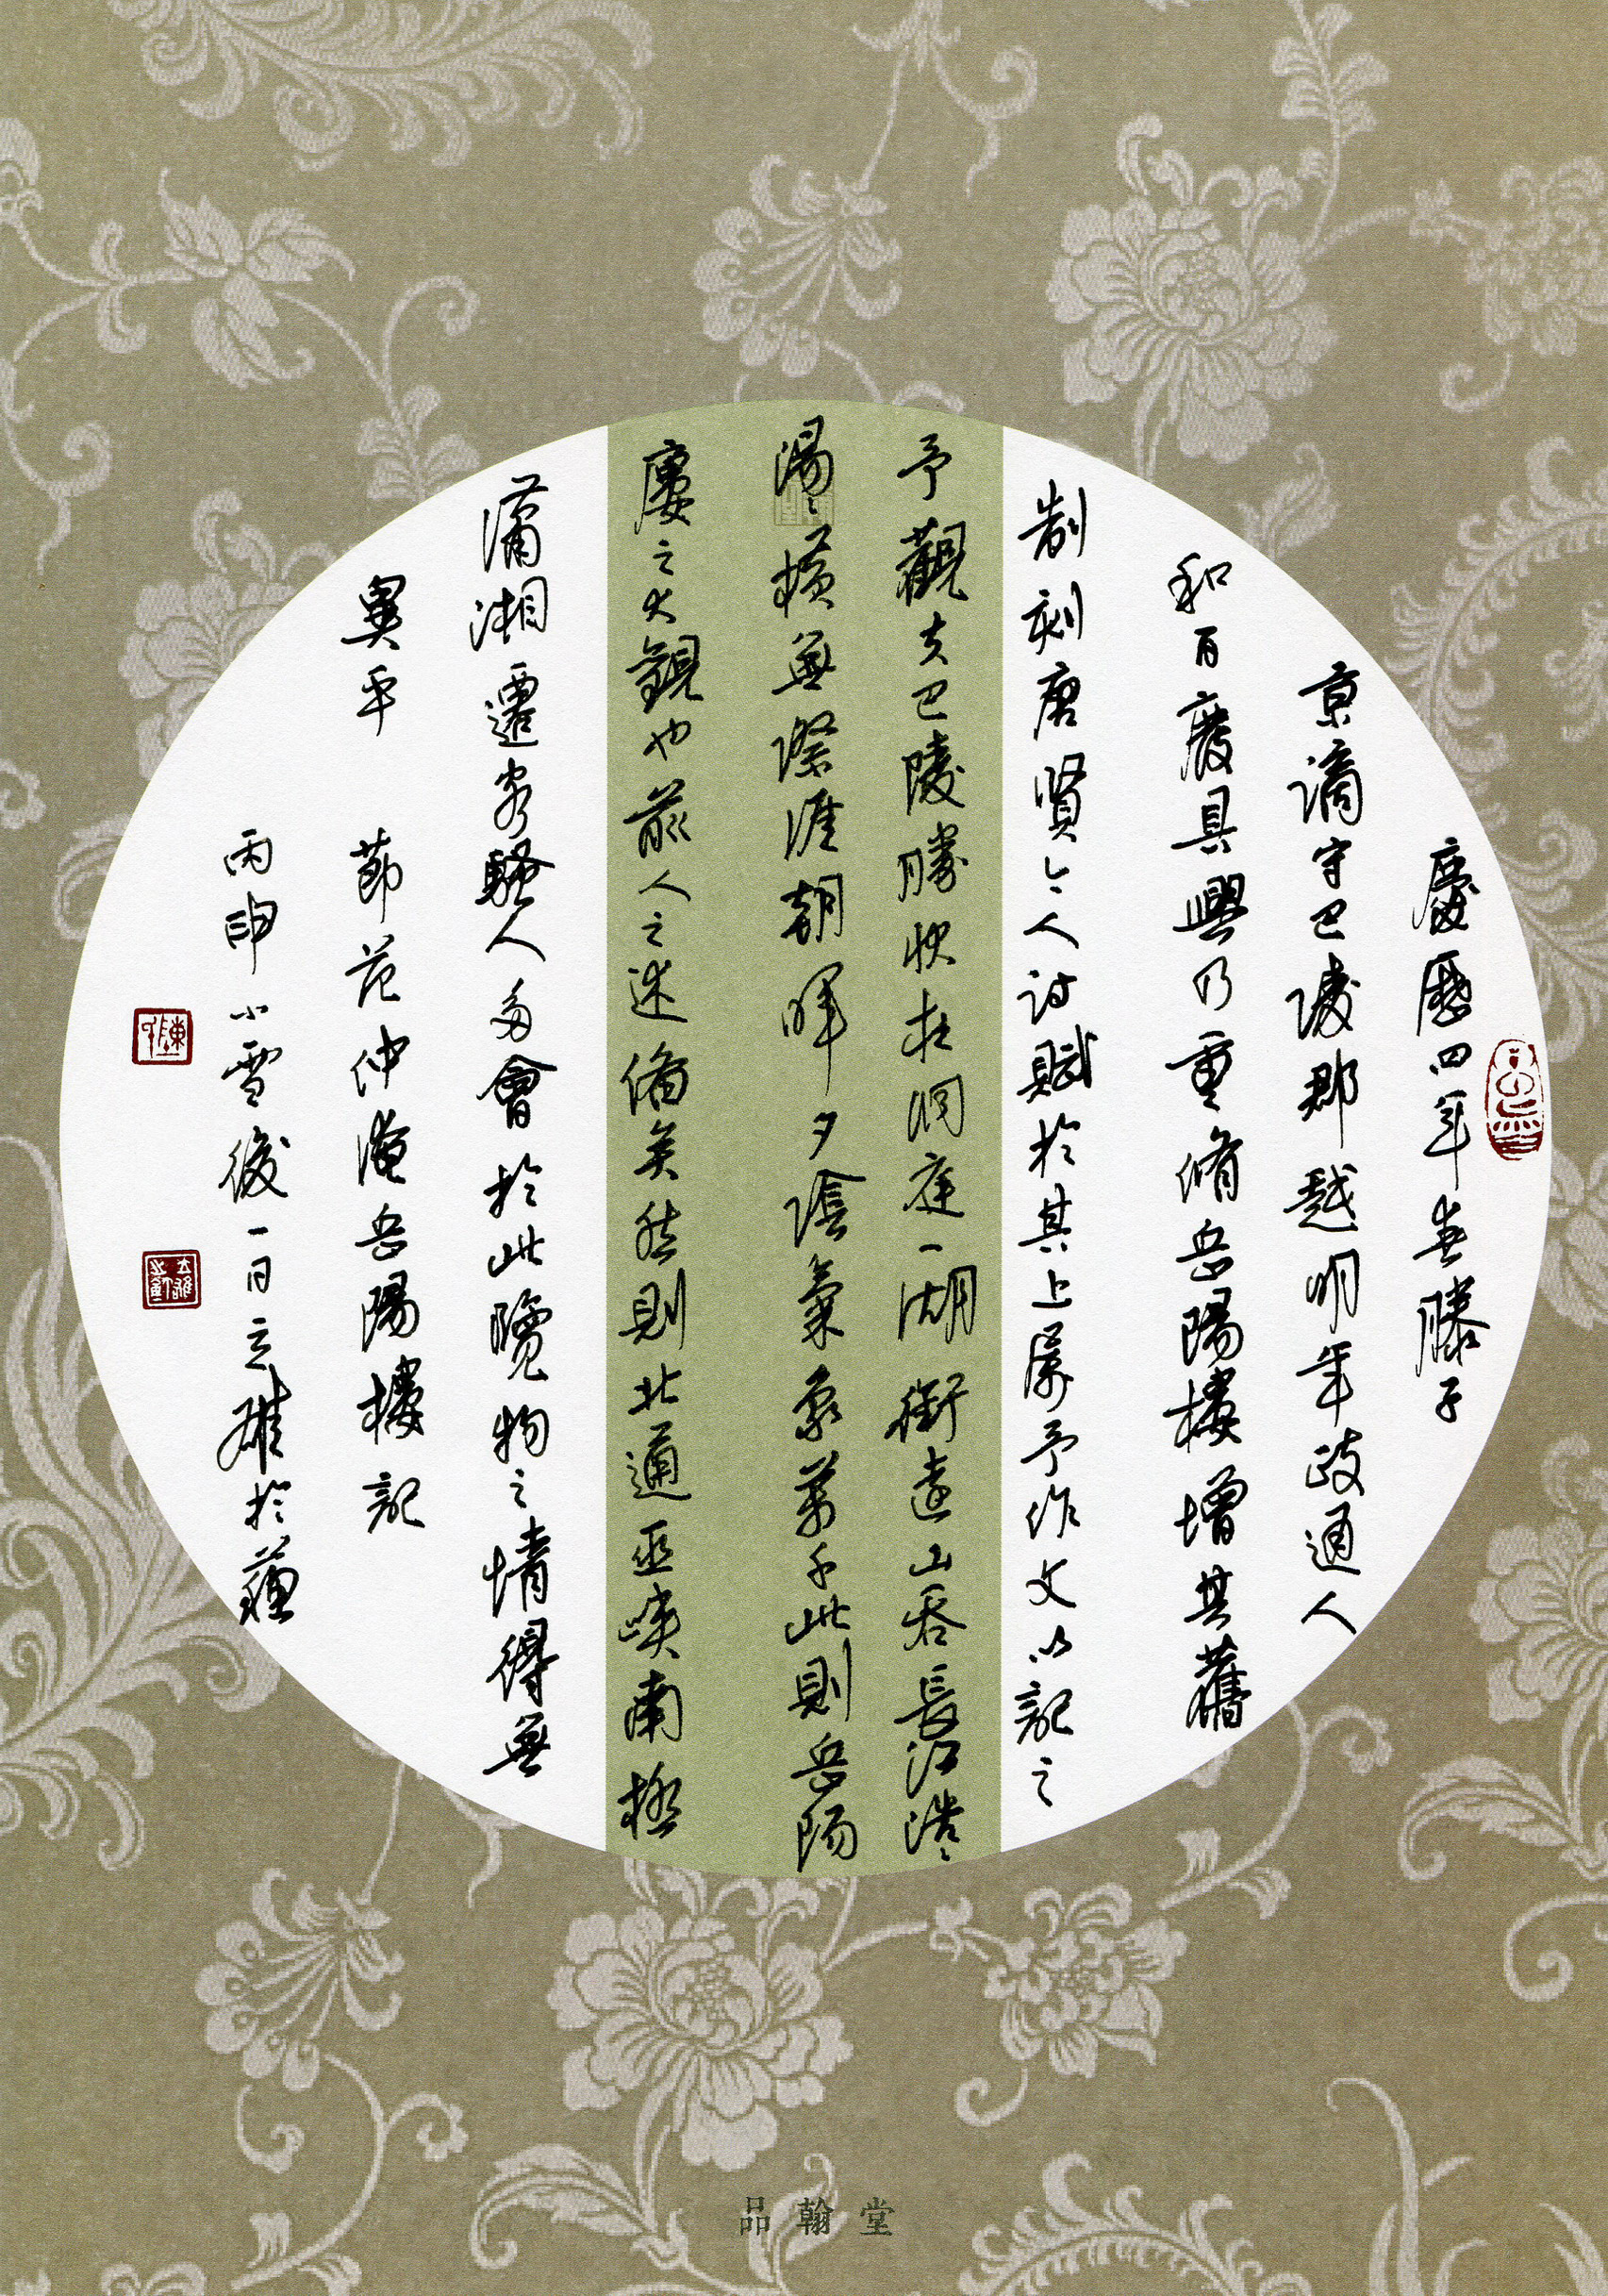 慶歷四年春滕子
京謫守巴陵郡越明年政通人
和百廢具興乃重脩岳陽樓增其舊
制刻唐賢今人詩賦於其上屬予作文以記之
予觀夫巴陵勝狀在洞庭一湖銜遠山吞長江浩〻
湯〻橫無際涯朝暉夕陰氣象萬千此則岳陽
樓之大觀也前人之述俻矣然則北通巫峽南極
瀟湘遷客騷人多會於此覽物之情得無
異乎 節范仲淹岳陽樓記
丙申小雪後一日立雄於蘓
品翰堂